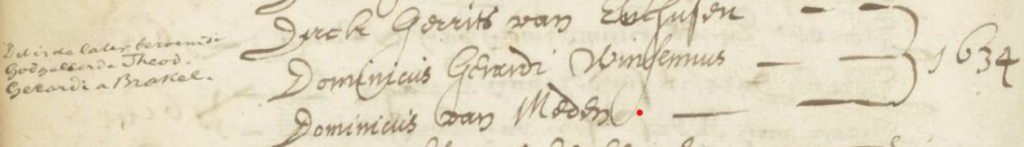 Dirck Gerrits van Enchusen
Dit is de later beroemde
Godgeleerde Theod.
Gerardi a Brakel.
Dominicus Gerardi Winsemius
1634
Dominicus van Meden